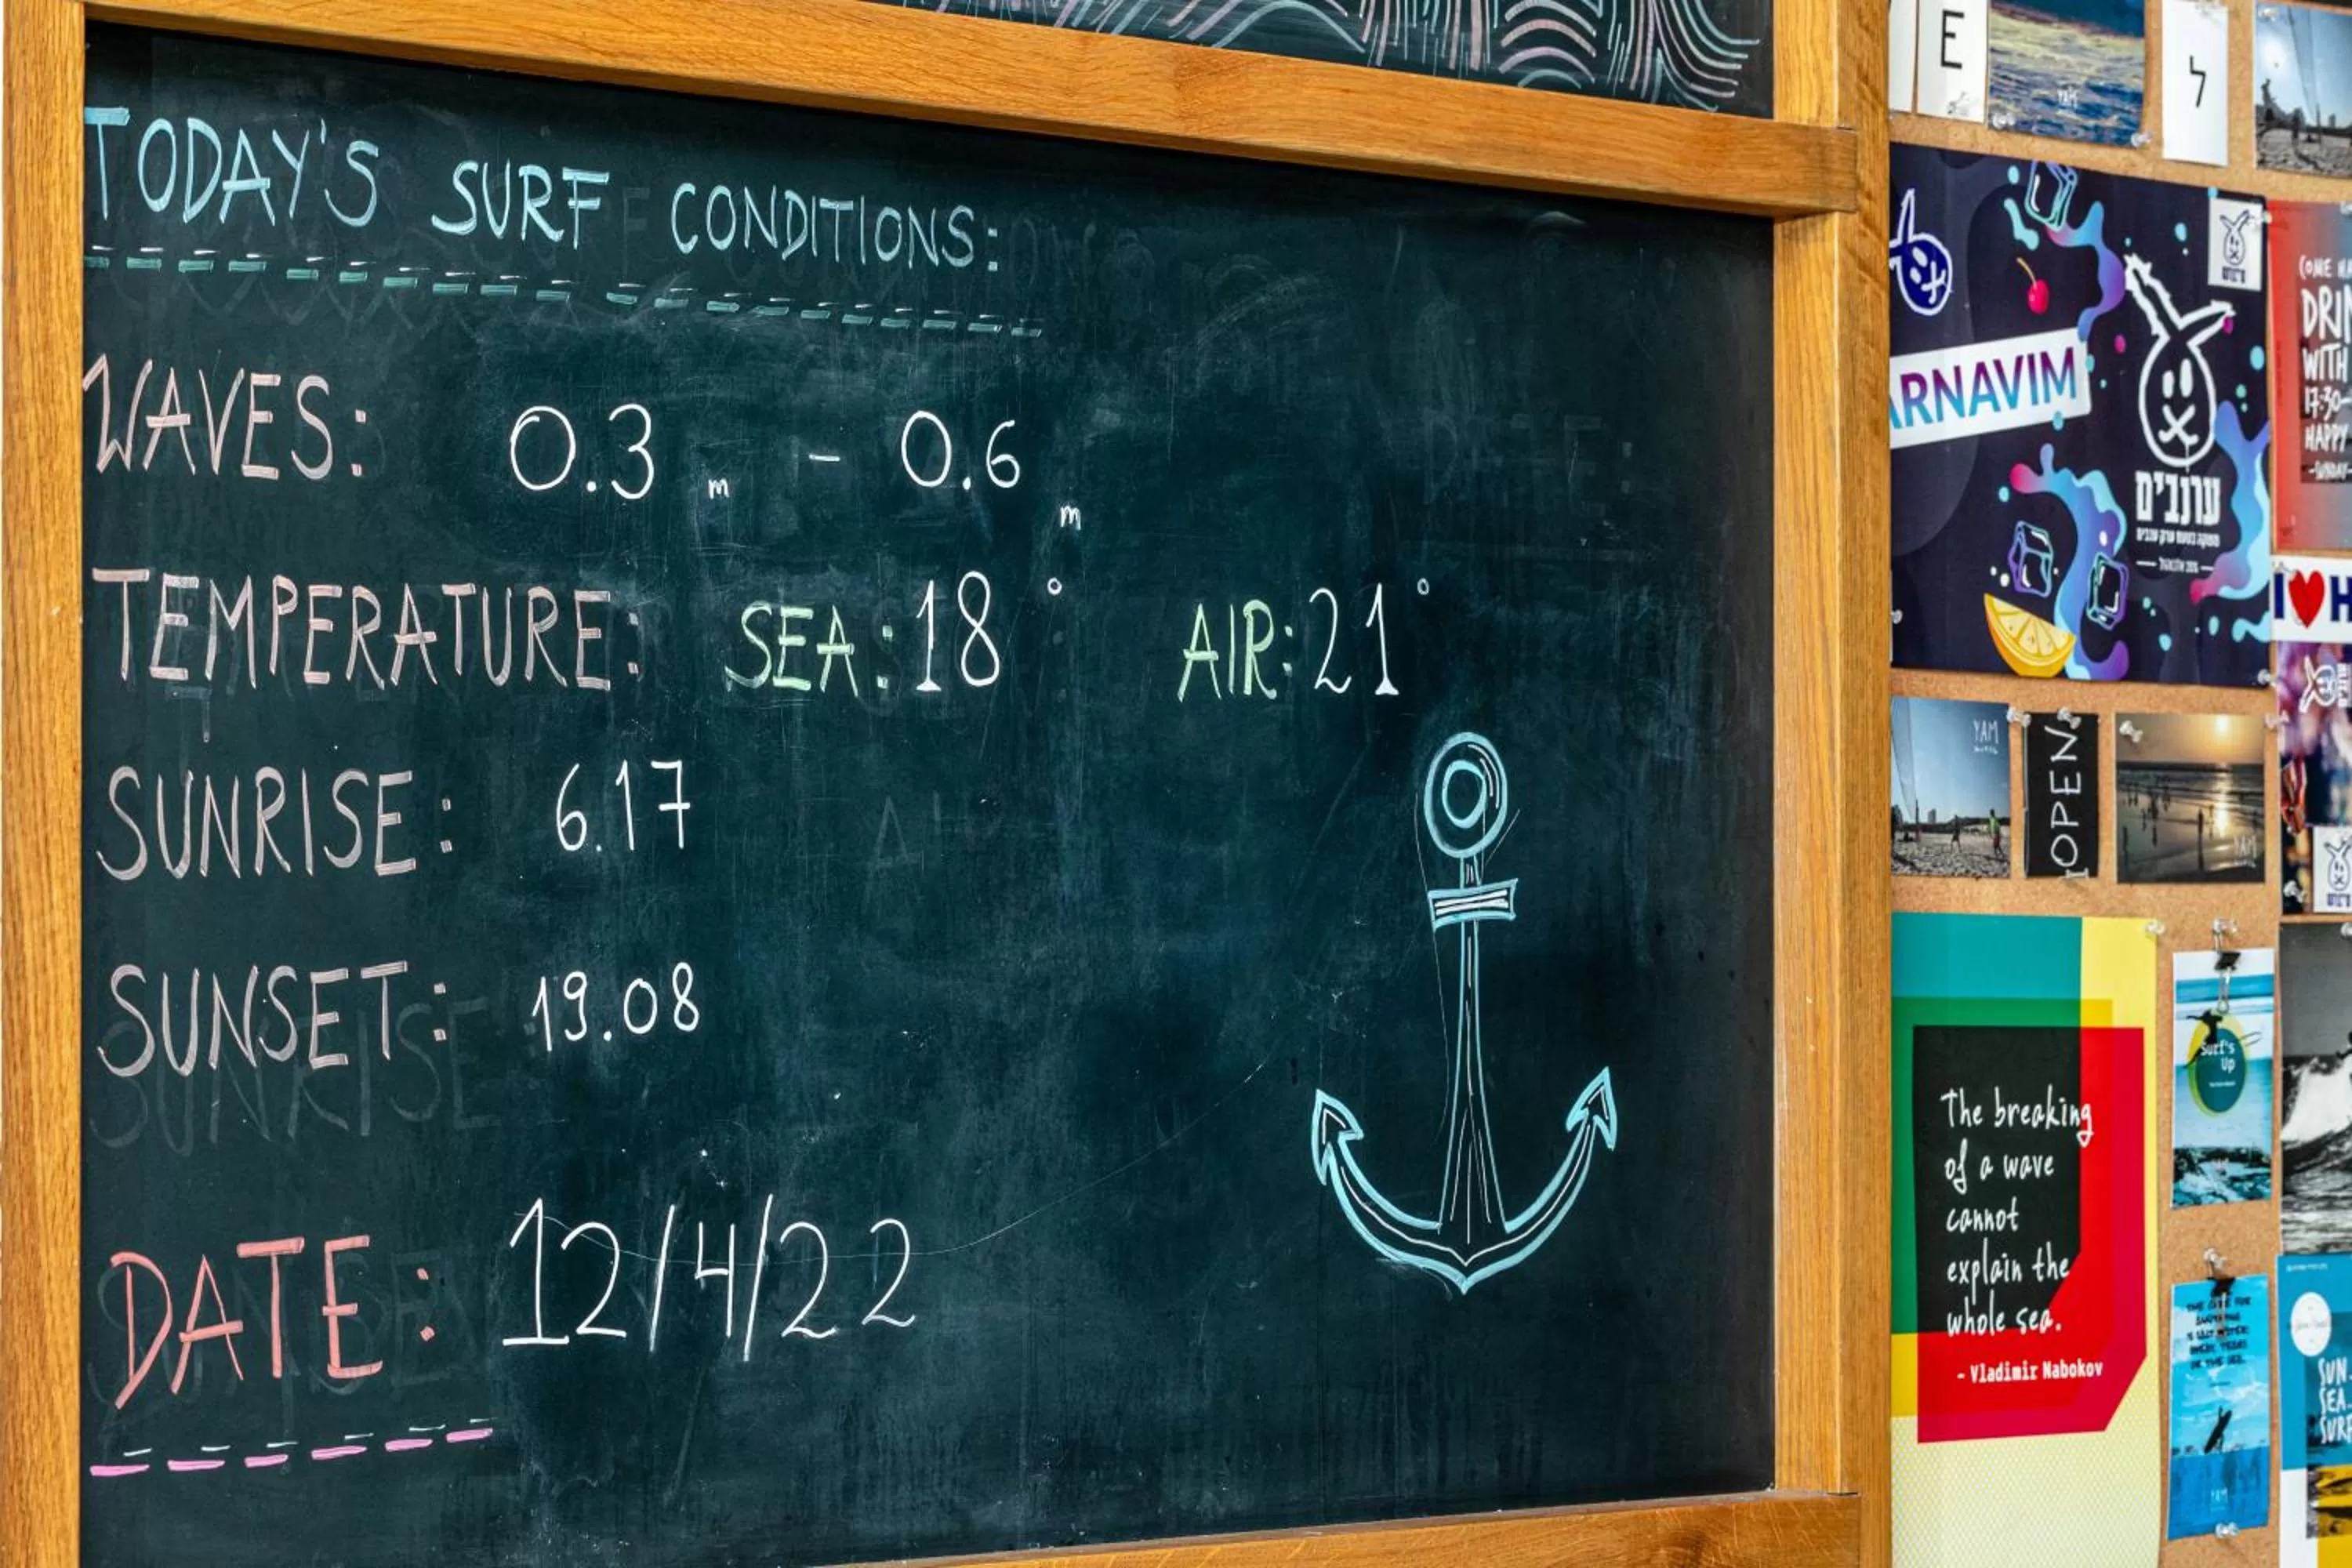 TODAY'S SURF CONDITIONS:
WAVES: 0.3 m - 0.6 m
TEMPERATURE: SEA: 18° AIR: 21°
SUNRISE: 6.17
SUNSET: 19.08
DATE: 12/4/22
E
ל
YAM
ARNAVIM
ערנבים
DRIN
WITH
17:30-
HAPPY
-SUNDAY-
I ❤ H
YAM
OPEN
YAM
The breaking
of a wave
cannot
explain the
whole sea.
- Vladimir Nabokov
Surf's
Up
YAM
SUN.
SEA.
SURF